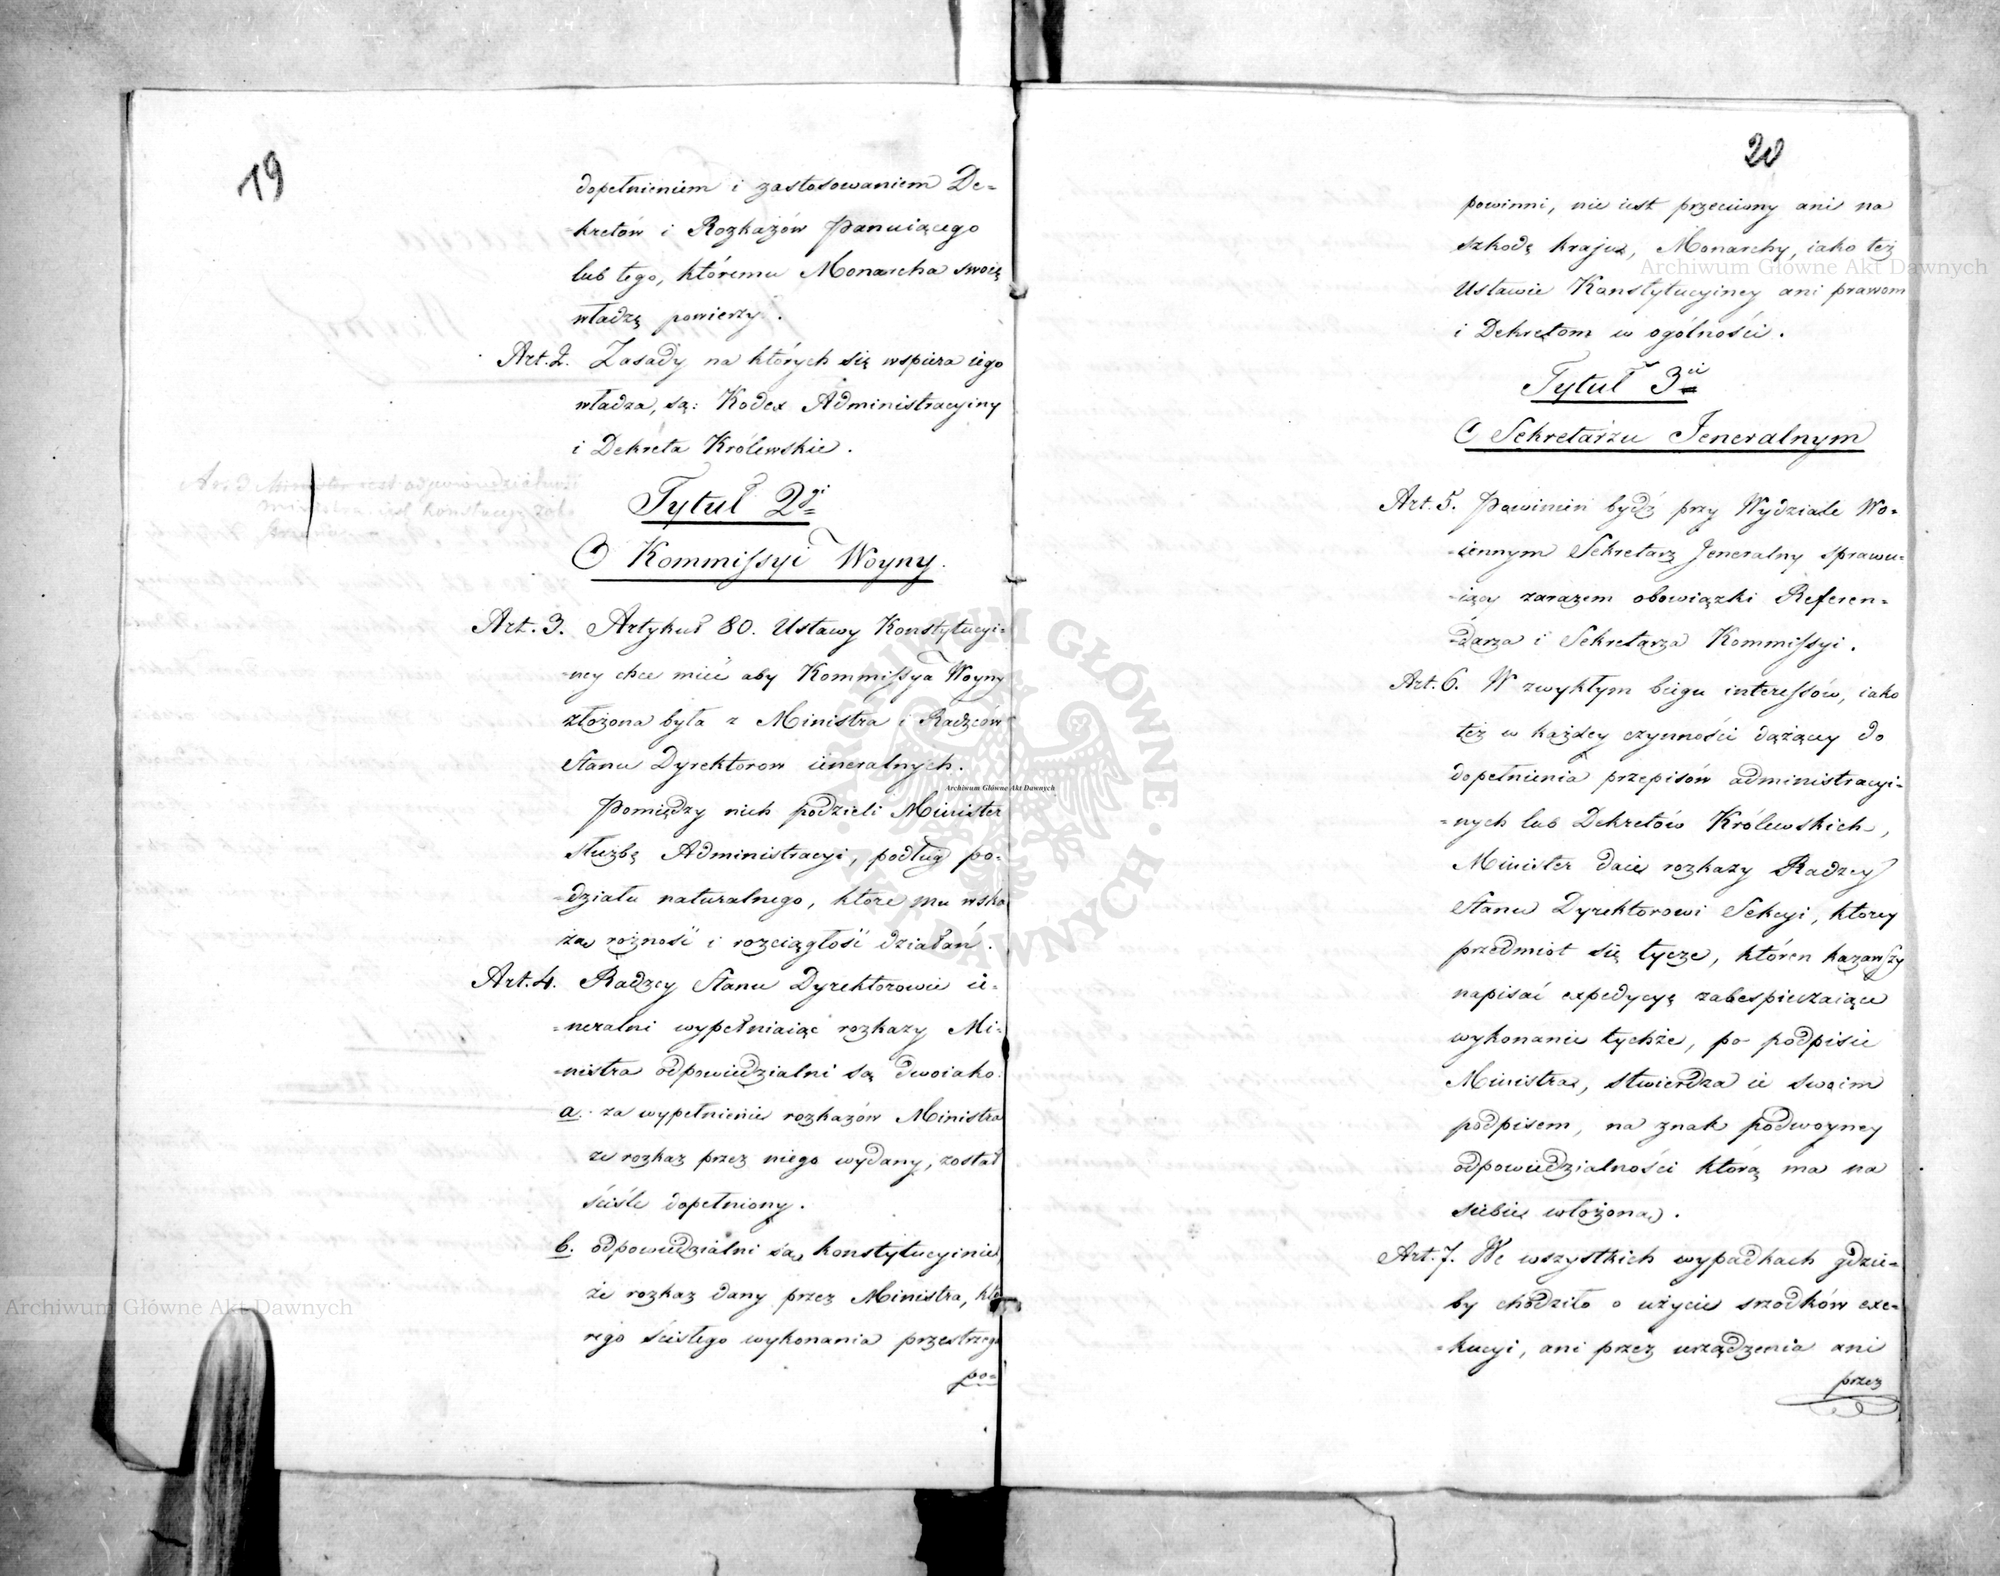 19
dopełnieniem i zastosowaniem De-
-kretów i Rozkazów Panuiącego
lub tego, któremu Monarcha swoią
władzę powierzy.
Art. 2. Zasady na których się wspiera iego
władza, są: Kodex Administracyiny
i Dekreta Królewskie.
Tytuł 2gi
O Kommissyi Woyny.
Art. 3. Artykuł 80. Ustawy Konstytucyi-
-ney chce mieć aby Kommissya Woyny
złożona była z Ministra i Radzców
Stanu Dyrektorow ieneralnych.
Pomiędzy nich podzieli Minister
służbę Administracyi, podług po-
-działu naturalnego, które mu wska
że rożność i rozciągłość działań.
Art. 4. Radzcy Stanu Dyrektorowie ie-
-neralni wypełniaiąc rozkazy Mi-
-nistra odpowiedzialni są dwoiako.
a. za wypełnienie rozkazów Ministra
że rozkaz przez niego wydany, został
ściśle dopełniony.
b. odpowiedzialni są konstytucyinie,
że rozkaz dany przez Ministra, któ
rego ścisłego wykonania przestrzega
po-
Art. 3 Minister iest odpowiedzialny
20
powinni, nie iest przeciwny ani na
szkodę kraju, Monarchy, iako też
Ustawie Konstytucyiney ani prawom
i Dekretom w ogólności.
Tytuł 3ci
O Sekretarzu Jeneralnym
Art. 5. Powinien bydź przy Wydziale Wo-
-iennym Sekretarz Jeneralny sprawu-
-iący zarazem obowiązki Referen-
-darza i Sekretarza Kommissyi.
Art. 6. W zwykłym biegu interessów, iako
też w każdey czynności dążącey do
dopełnienia przepisów administracyi-
-nych lub Dekretów Królewskich,
Minister daie rozkazy Radzcy
Stanu Dyrektorowi Sekcyi, którey
przedmiot się tycze, któren kazawszy
napisać expedycyę zabespieczaiące
wykonanie tychże, po podpisie
Ministra, stwierdza ie swoim
podpisem, na znak podwoyney
odpowiedzialności którą ma na
siebie włożoną.
Art. 7. We wszystkich wypadkach gdzie-
by chodziło o użycie srzodków exe-
-kucyi, ani przez urządzenia ani
przez
Archiwum Główne Akt Dawnych
Archiwum Główne Akt Dawnych
Archiwum Główne Akt Dawnych
ARCHIWUM GŁÓWNE AKT DAWNYCH